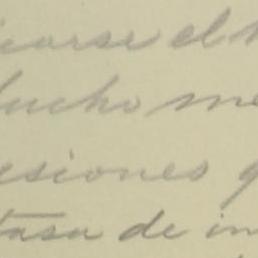 icarse el
Mucho me
esiones q
tasa de in